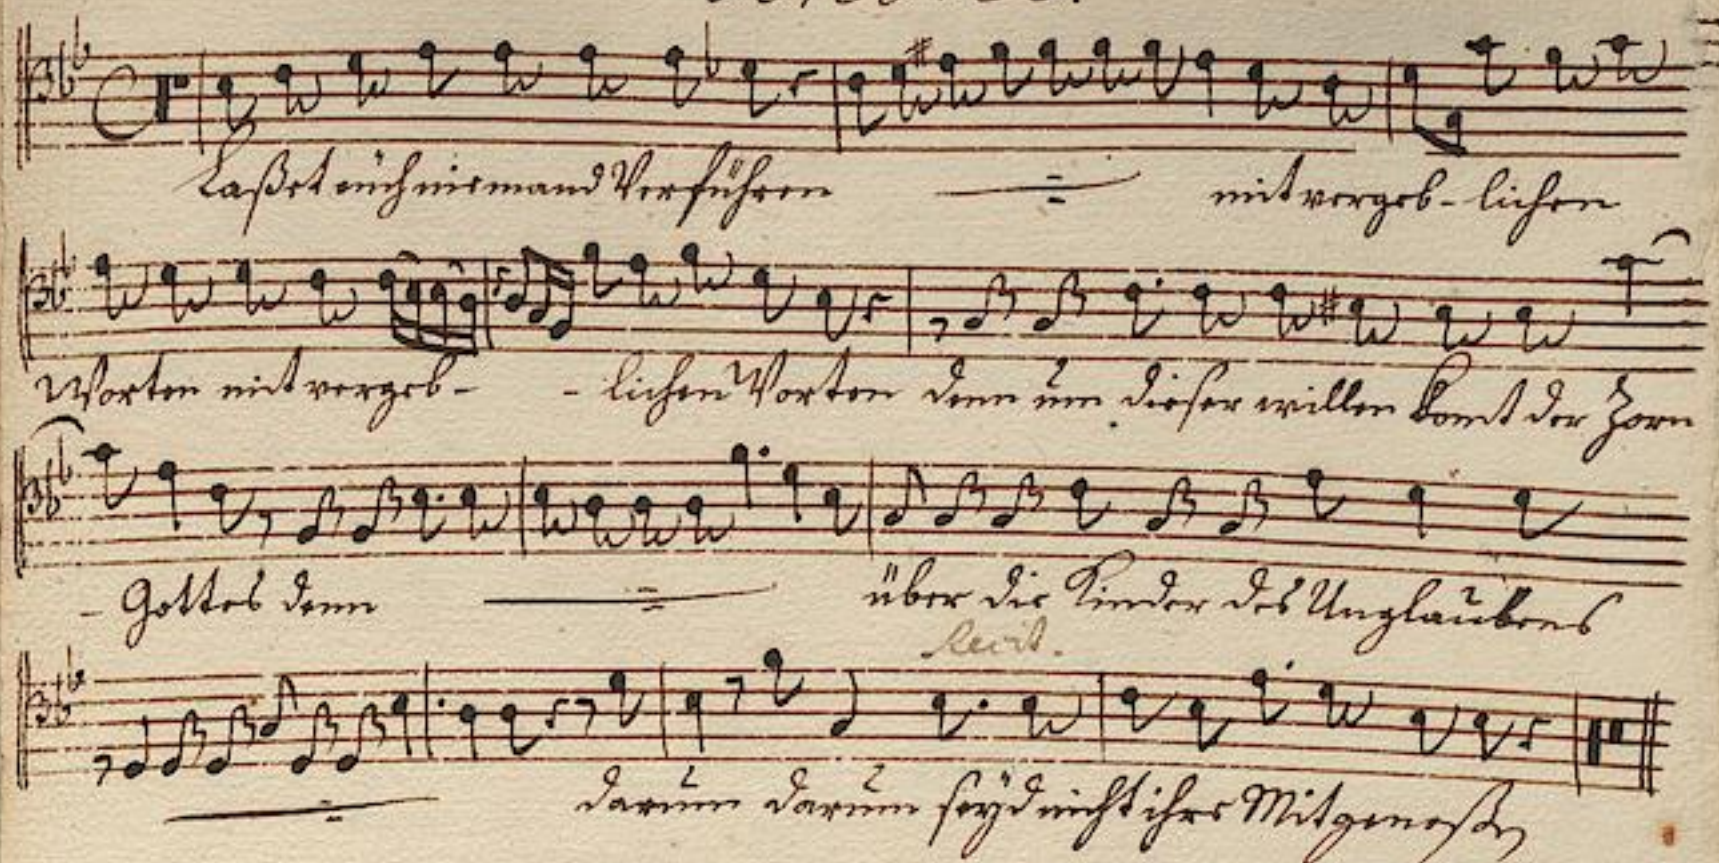 Laßet eüch niemand Verführen mit vergeb- lichen
Worten mit vergeb- - lichen Worten denn um dieser willen komt der Zorn
- Gottes denn über die Kinder des Unglaubens
Recit.
darum darum seyd nicht ihre Mitgenoßen